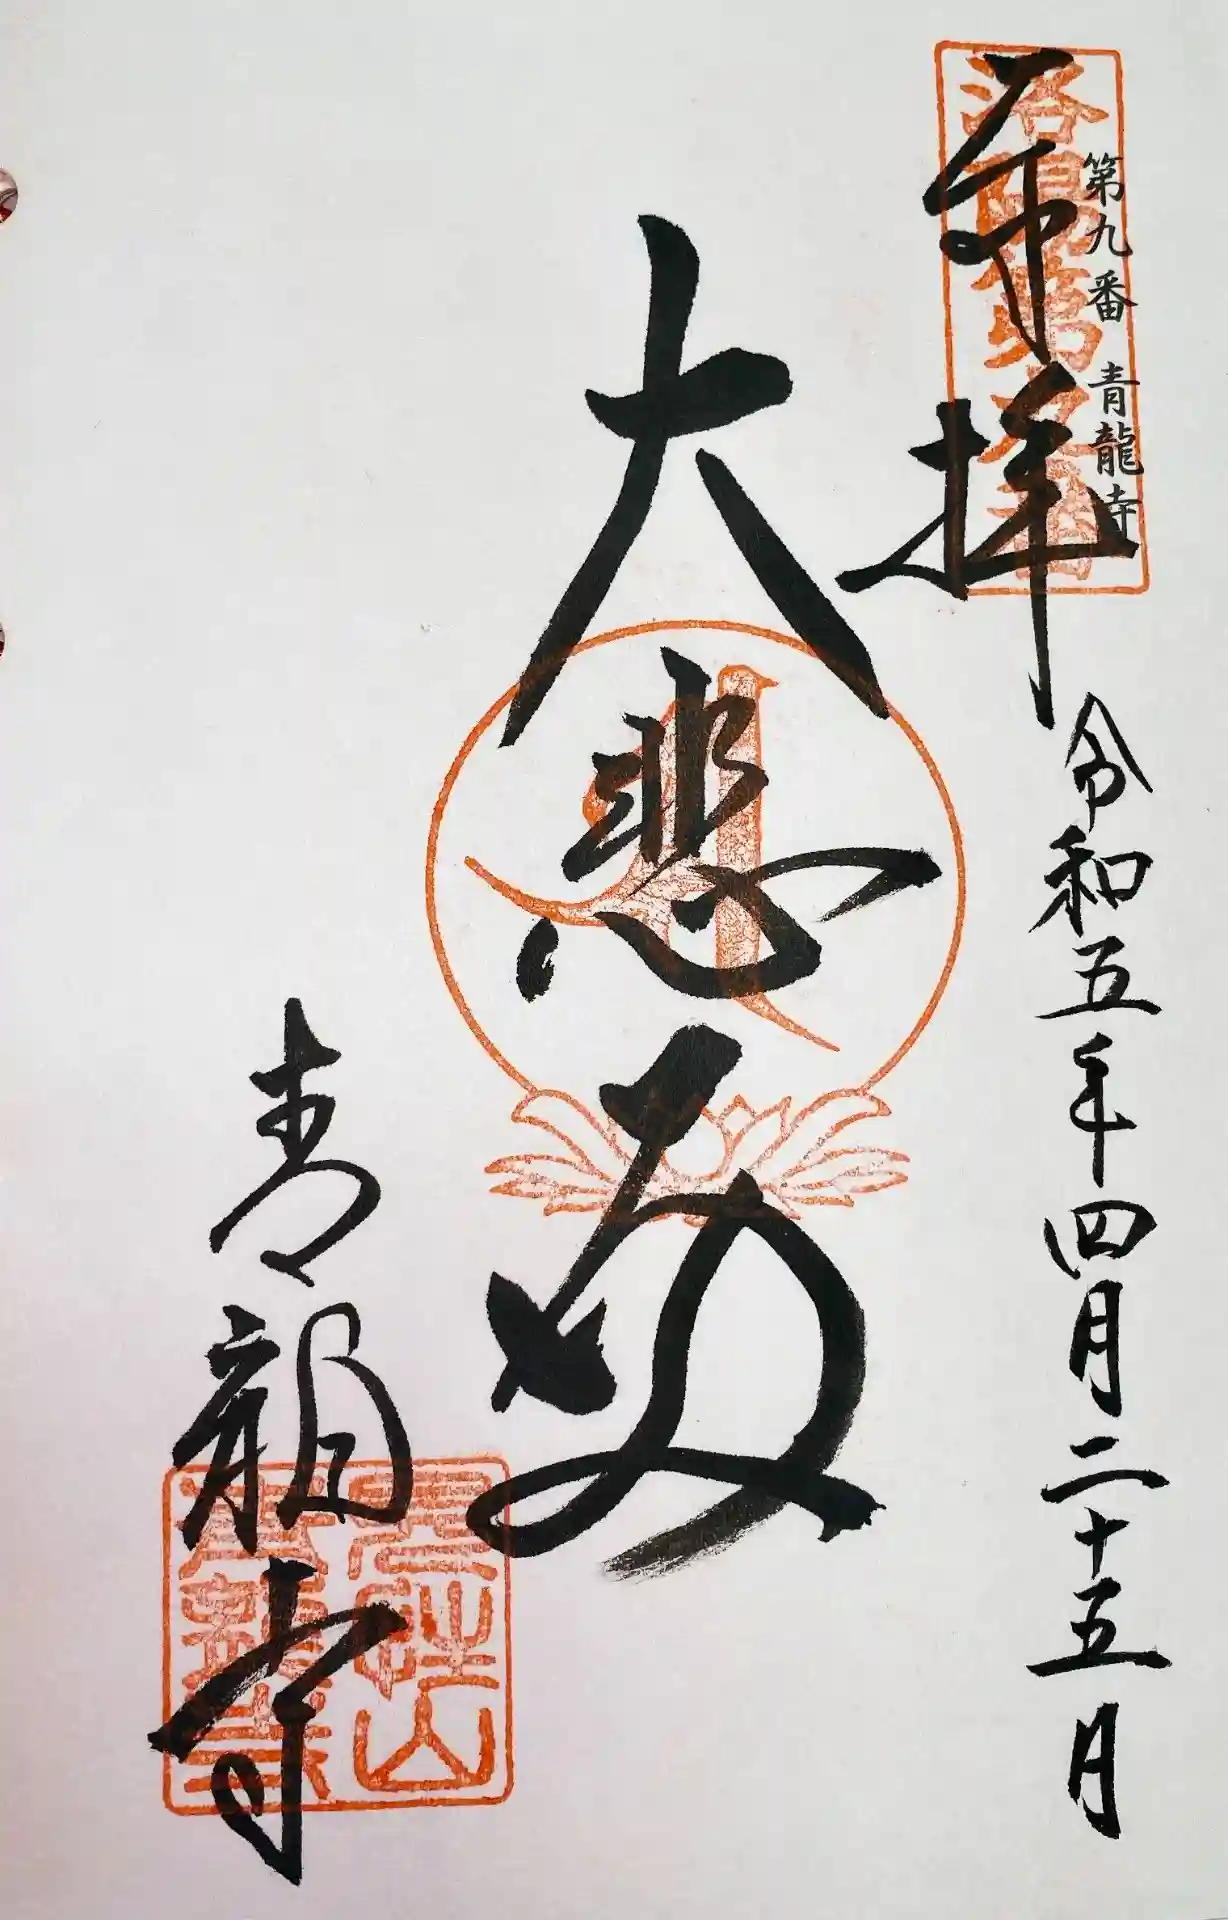 第九番 青龍寺
洛陽第九番
奉拝
令和五年四月二十五日
大悲殿
青龍寺